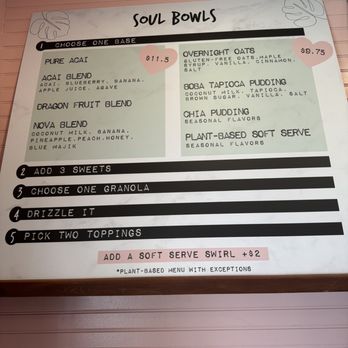 SOUL BOWLS
1 CHOOSE ONE BASE
PURE ACAI
$11.5
ACAI BLEND
ACAI, BLUEBERRY, BANANA,
APPLE JUICE, AGAVE
DRAGON FRUIT BLEND
NOVA BLEND
COCONUT MILK, BANANA,
PINEAPPLE, PEACH, HONEY,
BLUE MAJIK
OVERNIGHT OATS
$9.75
GLUTEN-FREE OATS, MAPLE
SYRUP, VANILLA, CINNAMON,
SALT
BOBA TAPIOCA PUDDING
COCONUT MILK, TAPIOCA,
BROWN SUGAR, VANILLA, SALT
CHIA PUDDING
SEASONAL FLAVORS
PLANT-BASED SOFT SERVE
SEASONAL FLAVORS
2 ADD 3 SWEETS
3 CHOOSE ONE GRANOLA
4 DRIZZLE IT
5 PICK TWO TOPPINGS
ADD A SOFT SERVE SWIRL +$2
*PLANT-BASED MENU WITH EXCEPTIONS